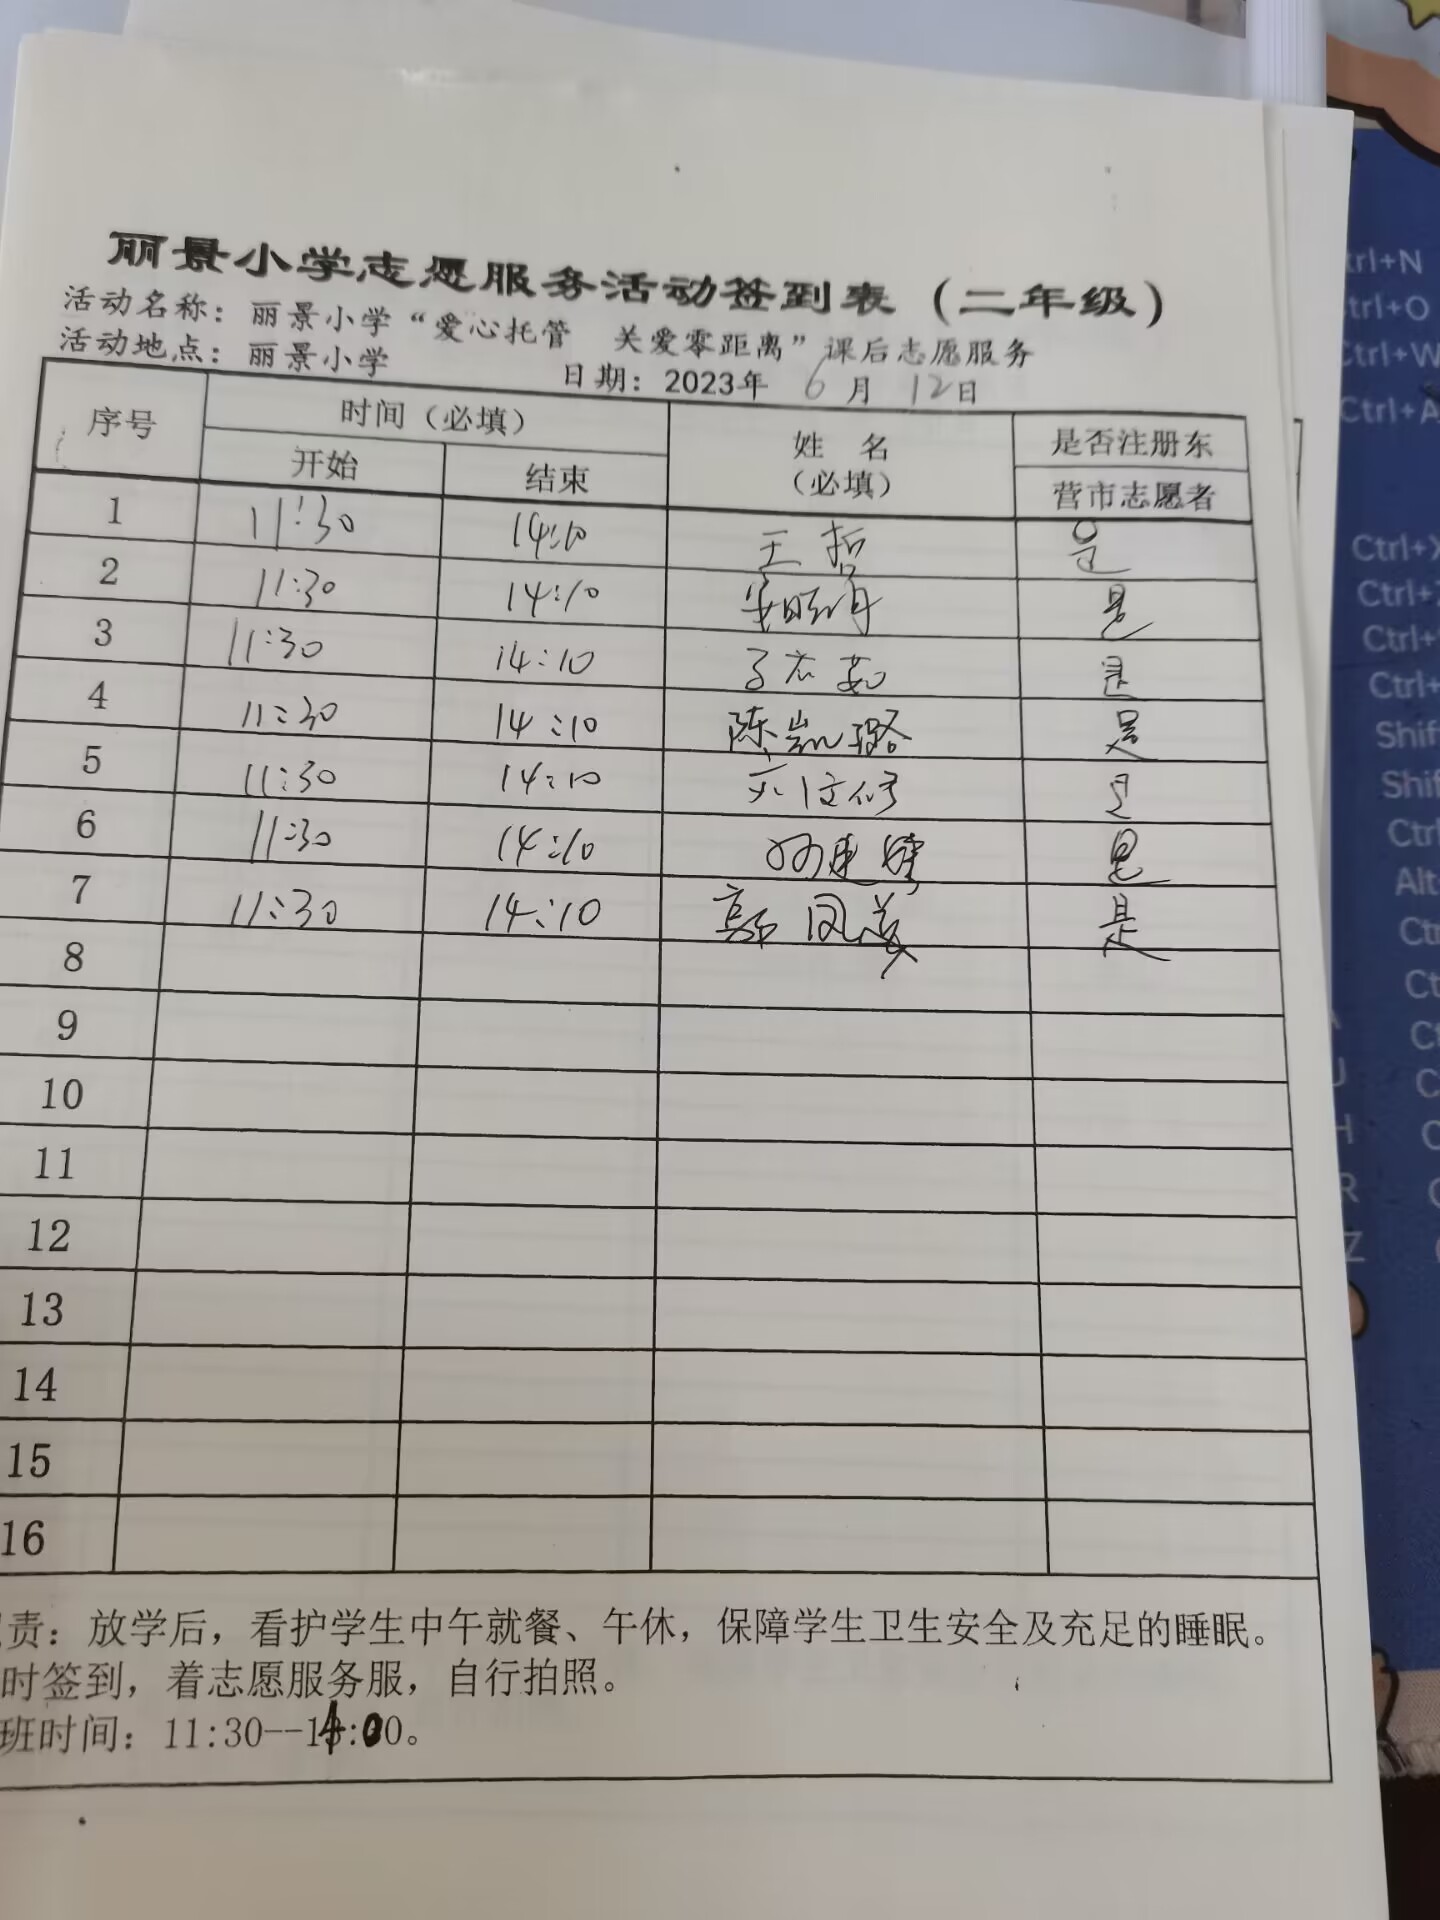 丽景小学志愿服务活动签到表（二年级）
活动名称：丽景小学“爱心托管 关爱零距离”课后志愿服务
活动地点：丽景小学 日期：2023年6月12日
序号 时间（必填） 姓 名（必填） 是否注册东营市志愿者
开始 结束
1 11:30 14:10 王哲 是
2 11:30 14:10 是
3 11:30 14:10 是
4 11:30 14:10 陈凯璐 是
5 11:30 14:10 是
6 11:30 14:10 是
7 11:30 14:10 高凤美 是
8
9
10
11
12
13
14
15
16
责：放学后，看护学生中午就餐、午休，保障学生卫生安全及充足的睡眠。
时签到，着志愿服务服，自行拍照。
班时间：11:30--14:00。
trl+N
trl+O
Ctrl+W
Ctrl+A
Ctrl+X
Ctrl+Z
Ctrl+
Ctrl+
Shif
Shif
Ctrl
Alt
Ctr